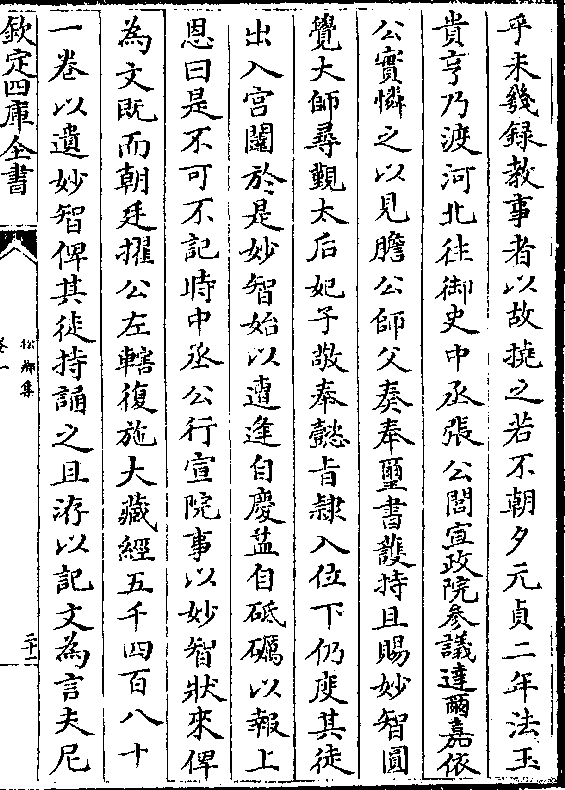 乎未幾録教事者以故撓之若不朝夕元貞二年法玉
貴亨乃渡河北往御史中丞張公閭宣政院參議達爾嘉依
公實憐之以見膽公師父奏奉璽書護持且賜妙智圓
覺大師尋覲太后妃子敬奉懿旨隷入位下仍庋其徒
出入宫闥於是妙智始以遭逢自慶益自砥礪以報上
恩曰是不可不記時中丞公行宣院事以妙智狀來俾
為文既而朝廷擢公左轄復施大藏經五千四百八十
一卷以遺妙智俾其徒持誦之且洊以記文為言夫尼
欽定四庫全書
松鄉集
卷一
二十二